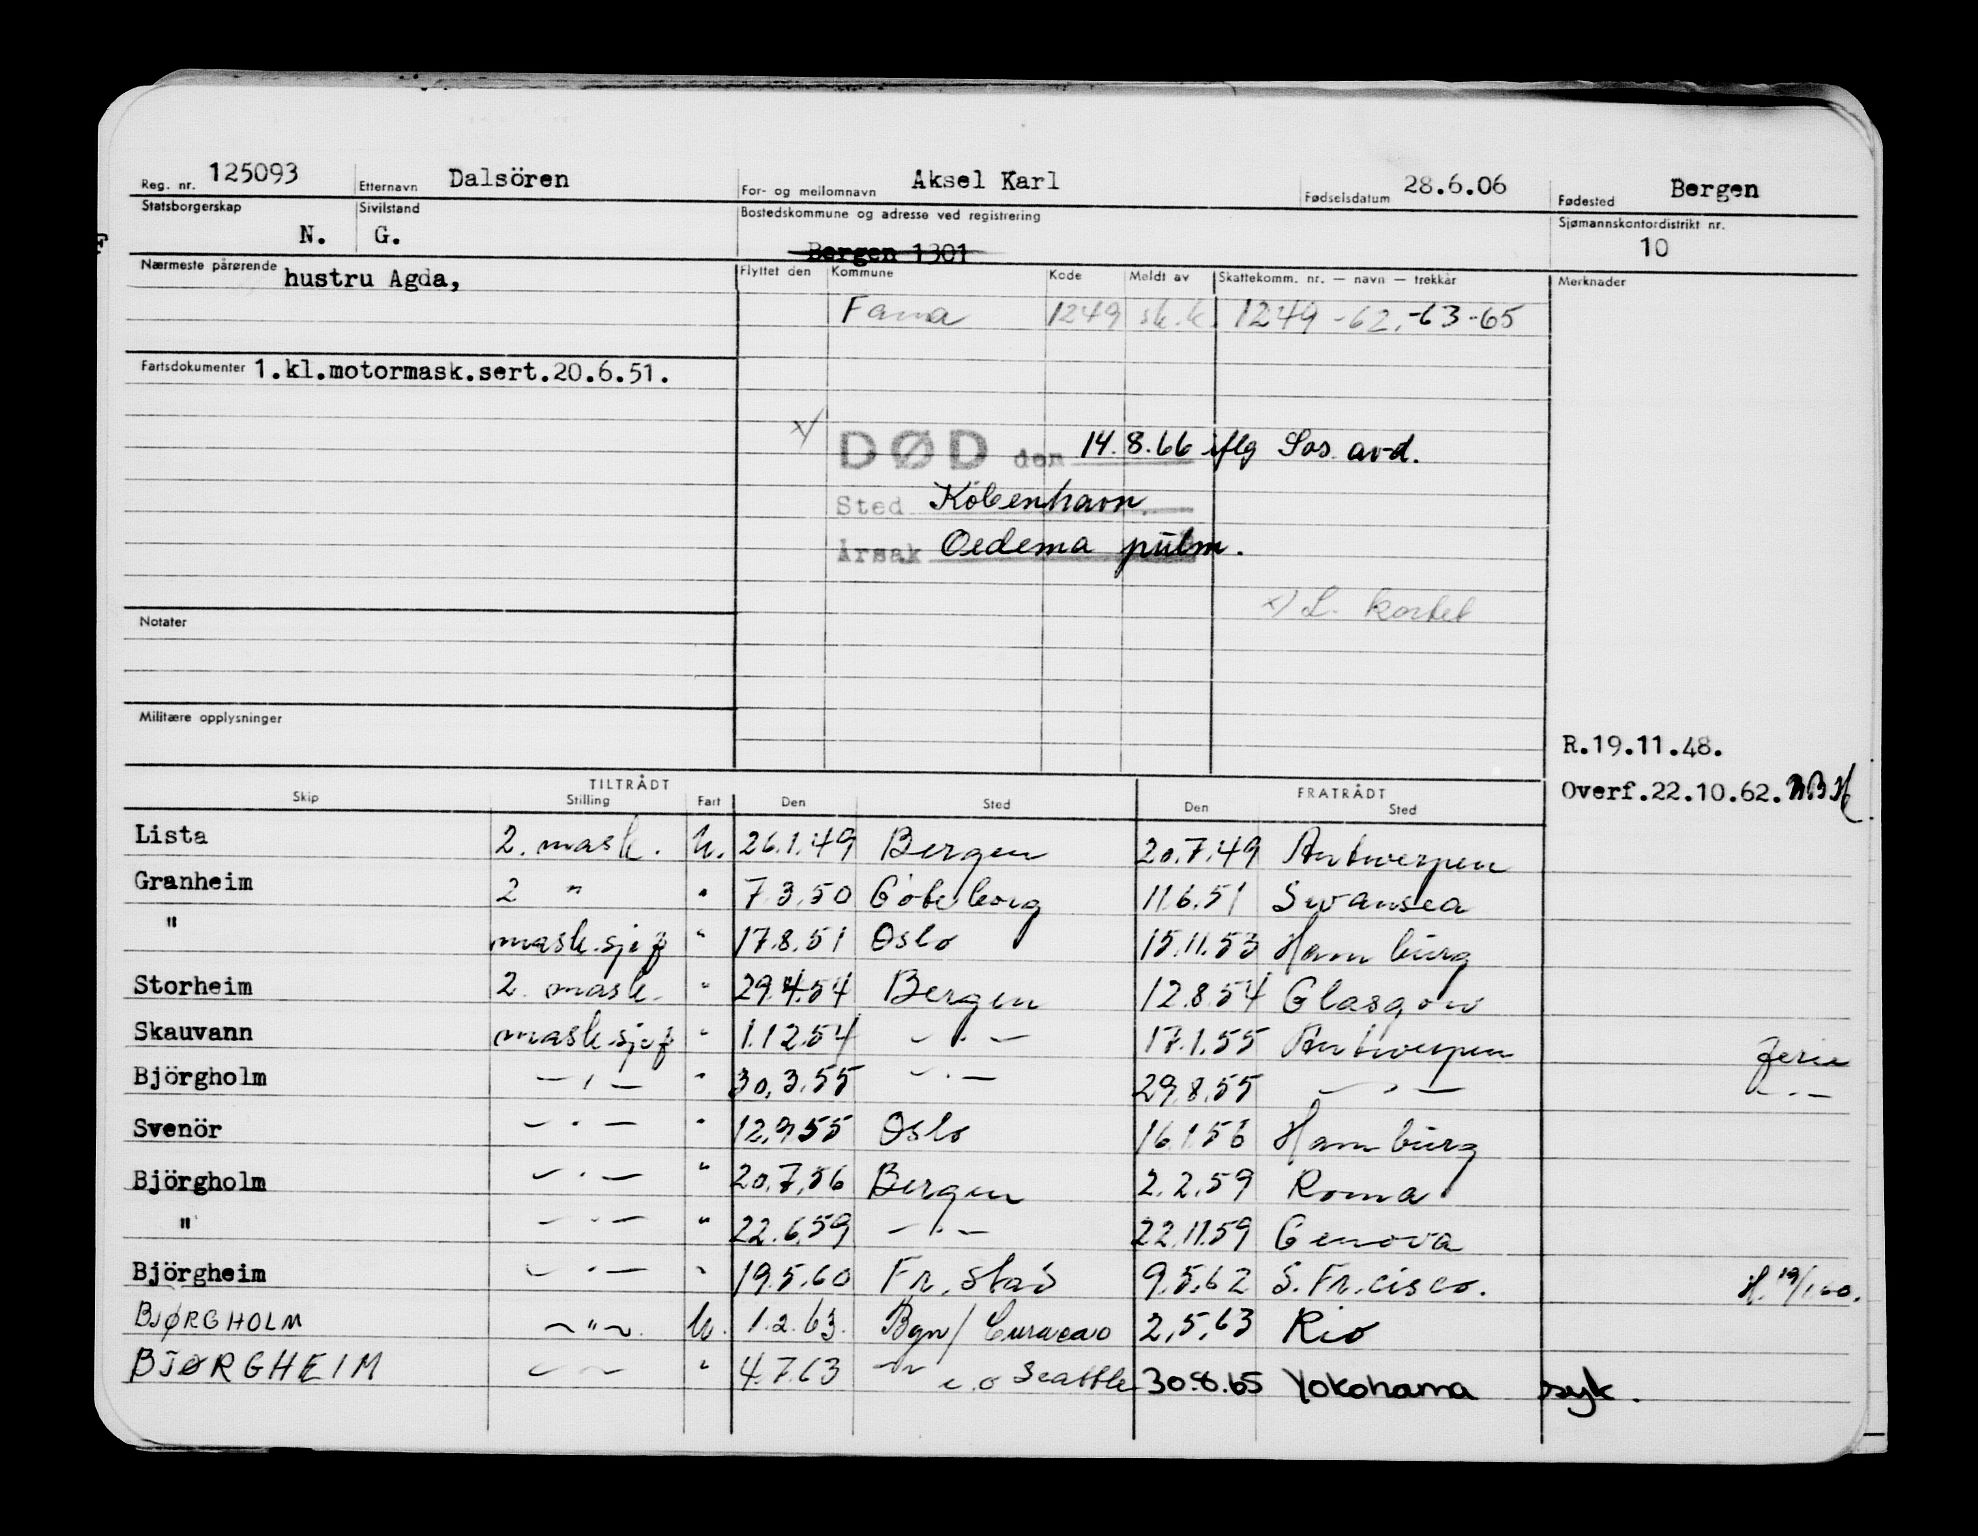 Reg. nr. 125093 Etternavn Dalsören For- og mellomnavn Aksel Karl Fødselsdatum 28.6.06 Fødested Bergen
Statsborgerskap N. Sivilstand G. Bostedskommune og adresse ved registrering Bergen 1301 Sjømannskontordistrikt nr. 10
Nærmeste pårørende hustru Agda, Flyttet den Kommune Kode Meldt av Skattekomm. nr. — navn — trekkår Merknader
Fana 1249 sk.k. 1249 -62.-63-65
Fartsdokumenter 1.kl.motormask.sert.20.6.51.
x/ DØD den 14.8.66 iflg Sos. avd.
Sted København
Årsak Oedema pulm.
x) L. kortet
Notater
Militære opplysninger
R.19.11.48.
Overf.22.10.62.
TILTRÅDT FRATRÅDT
Skip Stilling Fart Den Sted Den Sted
Lista 2. mask. U. 26.1.49 Bergen 20.7.49 Antwerpen
Granheim 2 " " 7.3.50 Göteborg 11.6.51 Swansea
" mask.sjef " 17.8.51 Oslo 15.11.53 Hamburg
Storheim 2. mask. " 29.4.54 Bergen 12.8.54 Glasgow
Skauvann mask.sjef " 1.12.54 — " — 17.1.55 Antwerpen ferie
Björgholm — " — " 30.3.55 — " — 29.8.55 — " — — " —
Svenör — " — " 12.9.55 Oslo 16.1.56 Hamburg
Björgholm — " — " 20.7.56 Bergen 2.2.59 Roma
" — " — " 22.6.59 — " — 22.11.59 Genova
Björgheim — " — " 19.5.60 Fr.stad 9.5.62 S.Fr.cisco. H. 19/1.60.
BJØRGHOLM — " — U. 1.2.63. Bgn/ Curacao 2.5.63 Rio
BJØRGHEIM — " — " 4.7.63 — " — e.o Seattle 30.8.65 Yokohama syk.